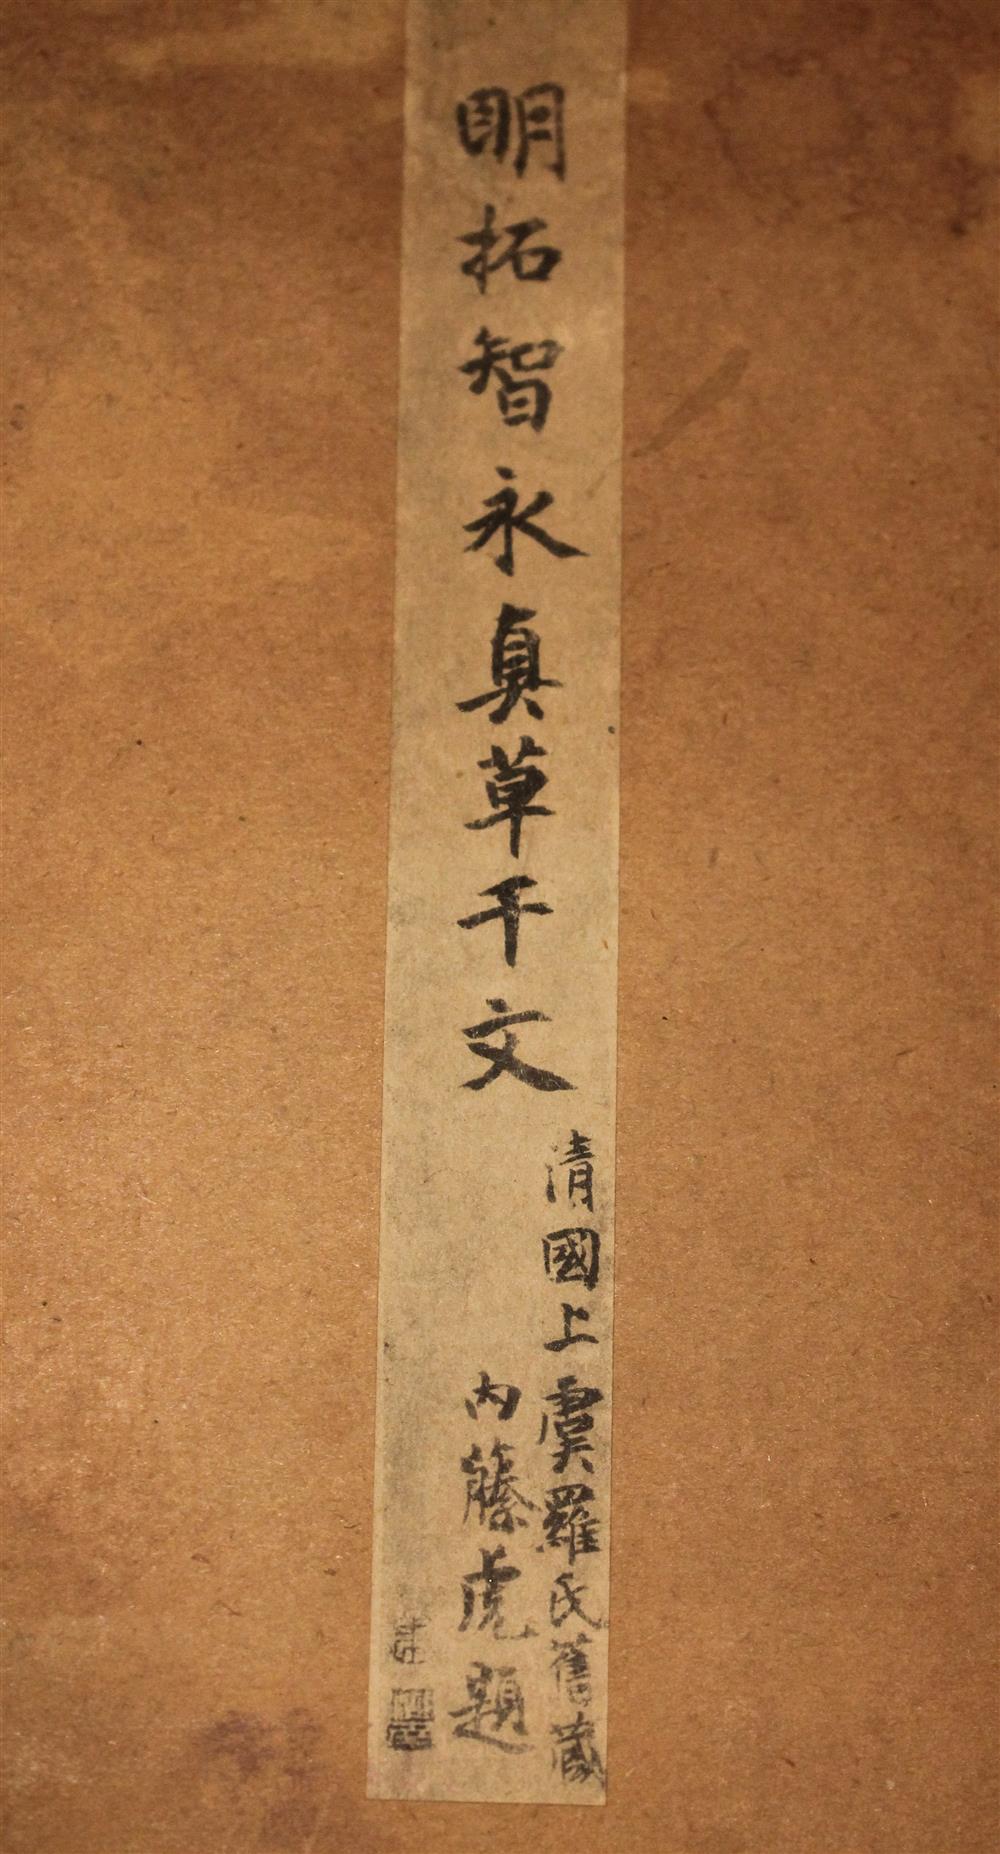 明拓智永真草千文
清國上虞羅氏舊藏
内藤虎題